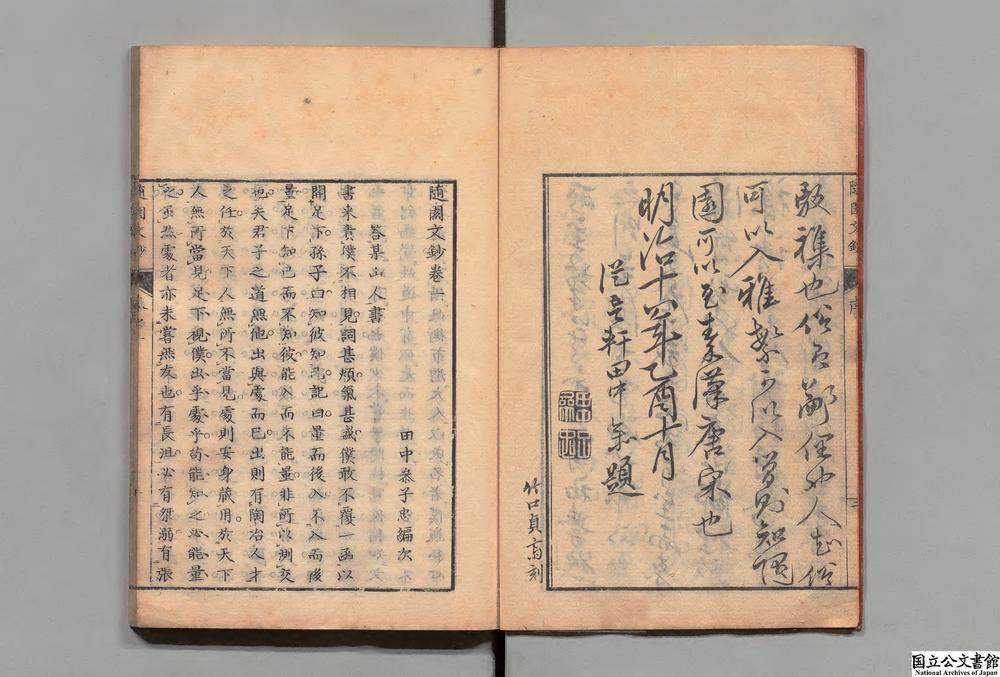 敖襍也俗言鄙俚如人起俗
可以入雅繁可以入簡則知隨
園可以至秦漢唐宋也
明治十八年乙酉十月
田中恭題
竹口貞斎刻
随園文鈔
随園文鈔卷一
答某山人書
田中恭子忠編次
書来責僕不相見詞甚煩氣甚盛僕敢不覆一函以
開足下孫子曰知彼知己記曰量而後入不入而後
量足下知己而不知彼能入而不能量非所以測交
也夫君子之道無他出與處而已出則有陶冶人才
之任於天下人無所不當見處則安身藏用於天下
人無所當見足下視僕出乎處乎苟能知之必能量
之虽然處者亦未嘗無友也有長沮必有桀溺有張
国立公文書館
National Archives of Japan